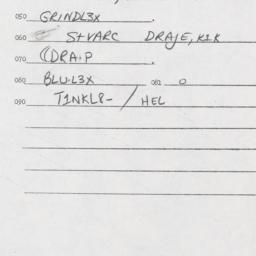 050 GRINDL3X
060 S+VARC DRAJE, K1K
070 ((DRA·P
080 BLU·L3X 081 0
090 T1NKL8- / HEL